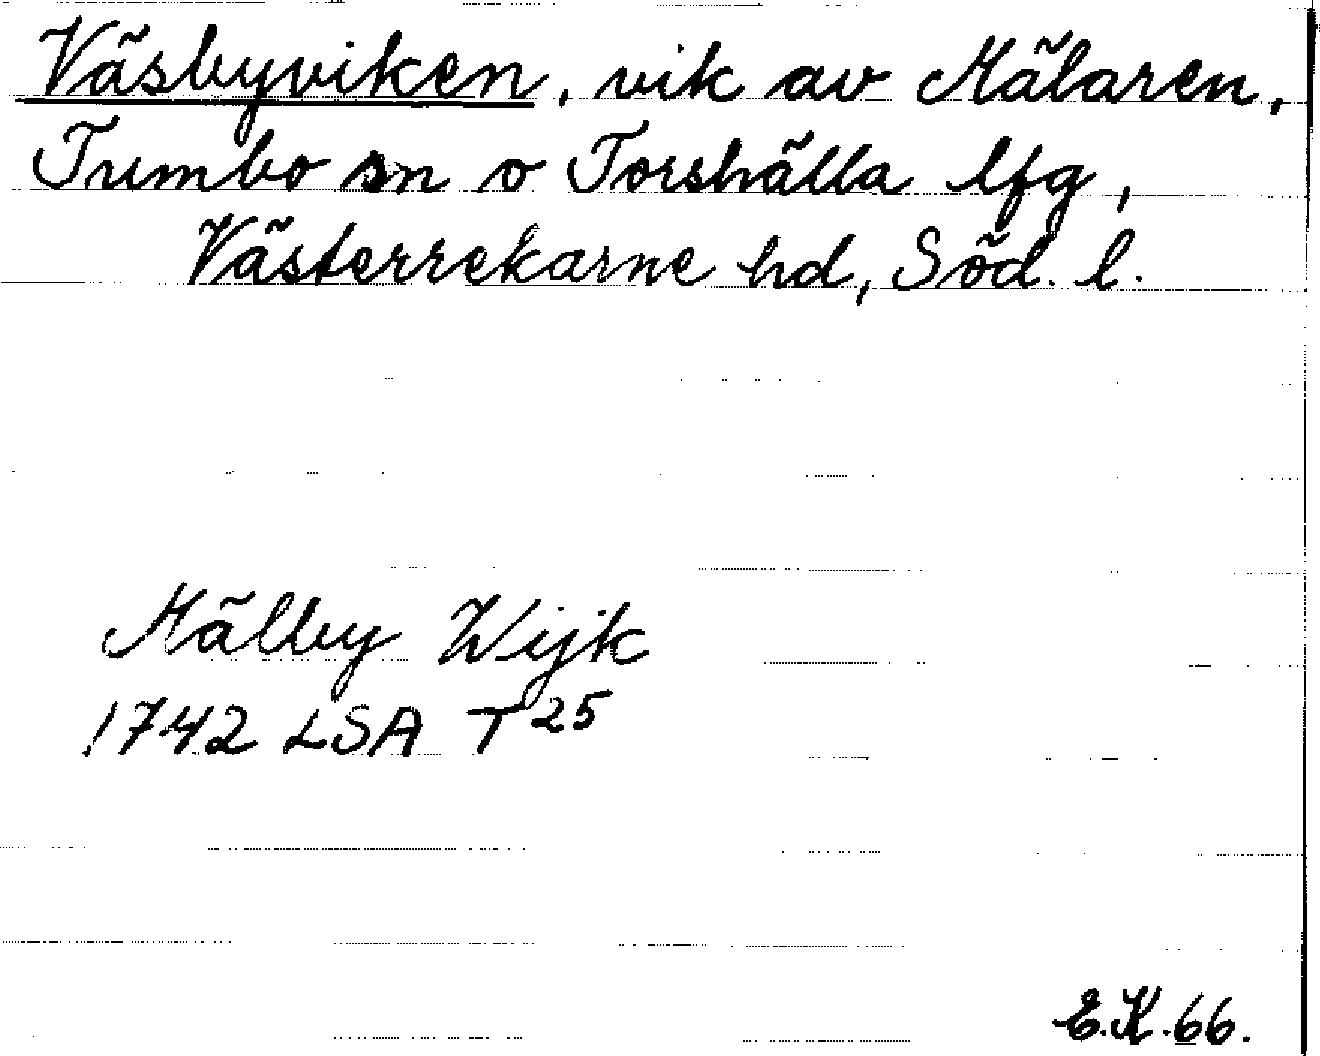 Väsbyviken, vik av Mälaren,
Tumbo sn o Torshälla lfg,
Västerrekarne hd, Söd. l.
Mälby Wijk
1742 LSA T 25
E.K. 66.